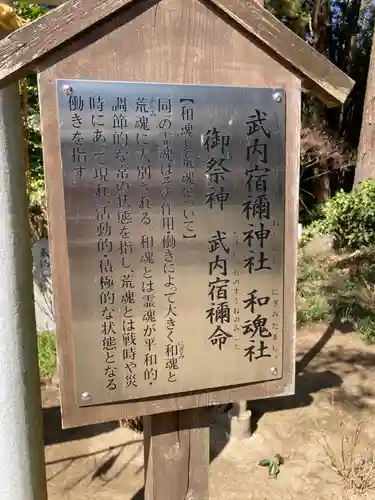 武内宿禰神社 和魂社
御祭神 武内宿禰命
【和魂と荒魂について】
同一の霊魂はその作用・働きによって大きく和魂と
荒魂に大別される 和魂とは霊魂が平和的・
調節的な常の状態を指し、荒魂とは戦時や災
時にあって現れ、活動的・積極的な状態となる
働きを指す。